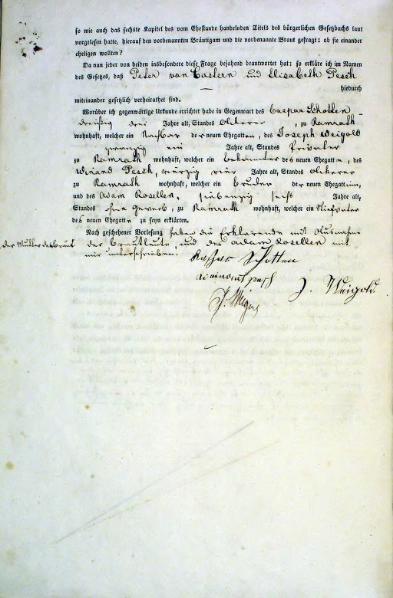 so wie auch das sechste Kapitel des vom Ehestande handelnden Titels des bürgerlichen Gesetzbuchs laut
vorgelesen hatte, hierauf den vorbenannten Bräutigam und die vorbenannte Braut gefragt: ob sie einander
ehelichen wollten?
Da nun jeder von beiden insbesondere diese Frage bejahend beantwortet hat: so erkläre ich im Namen
des Gesetzes, daß Peter van Und Elisabeth Pesch
hiedurch
miteinander gesetzlich verheirathet sind.
Worüber ich gegenwärtige Urkunde errichtet habe in Gegenwart des Caspar Schotten
dreißig drei Jahre alt, Standes Ackerer, zu Ramrath
wohnhaft, welcher ein der neuen Ehegatten, des Joseph Weigold
zwanzig Jahre alt, Standes
zu Ramrath wohnhaft, welcher ein Bekannter des neuen Ehegatten, des
Winand Pesch, vierzig vier Jahre alt, Standes Ackerer
zu Ramrath wohnhaft, welcher ein Bruder der neuen Ehegattinn,
und des Adam Rosellen, siebenzig sechs Jahre alt,
Standes ohne Gewerb, zu Ramrath wohnhaft, welcher ein Stiefvater
des neuen Ehegatten zu seyn erklärten.
Nach geschehener Vorlesung haben die Erklärenden mit Ausnahme
der Mutter der Braut
der Brautleute, und des Adam Rosellen mit
mir unterschrieben.
Caspar Schotten
J. Weigold